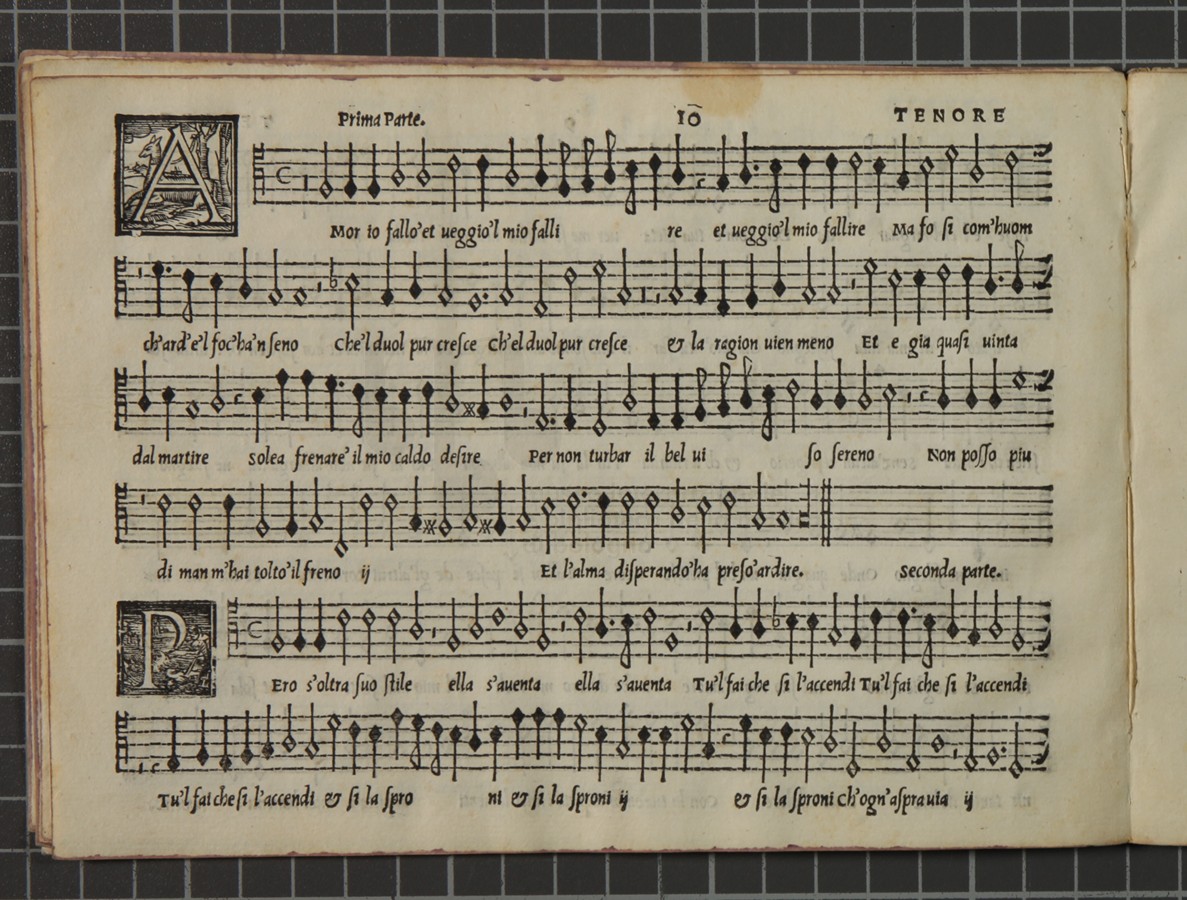 Prima Parte. IO TENORE
A Mor io fallo'et ueggio'l mio falli re et ueggio'l mio fallire Ma fo ſi com'huom
ch'ard'e'l foc'ha'n ſeno Che'l duol pur creſce Ch'el duol pur creſce & la ragion uien meno Et e gia quaſi uinta
dal martire Solea frenare' il mio caldo deſire Per non turbar il bel ui ſo ſereno Non poſſo piu
di man m'hai tolto'il freno ij Et l'alma diſperando'ha preſo'ardire. Seconda parte.
P Ero s'oltra ſuo ſtile ella s'auenta ella s'auenta Tu'l fai che ſi l'accendi Tu'l fai che ſi l'accendi
Tu'l fai che ſi l'accendi & ſi la ſpro ni & ſi la ſproni ij & ſi la ſproni Ch'ogn'aſpra uia ij